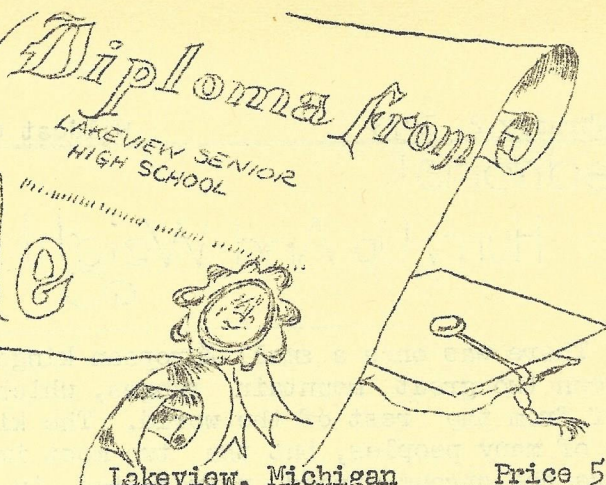 Diploma from
LAKEVIEW SENIOR
HIGH SCHOOL
e
Lakeview, Michigan Price 5